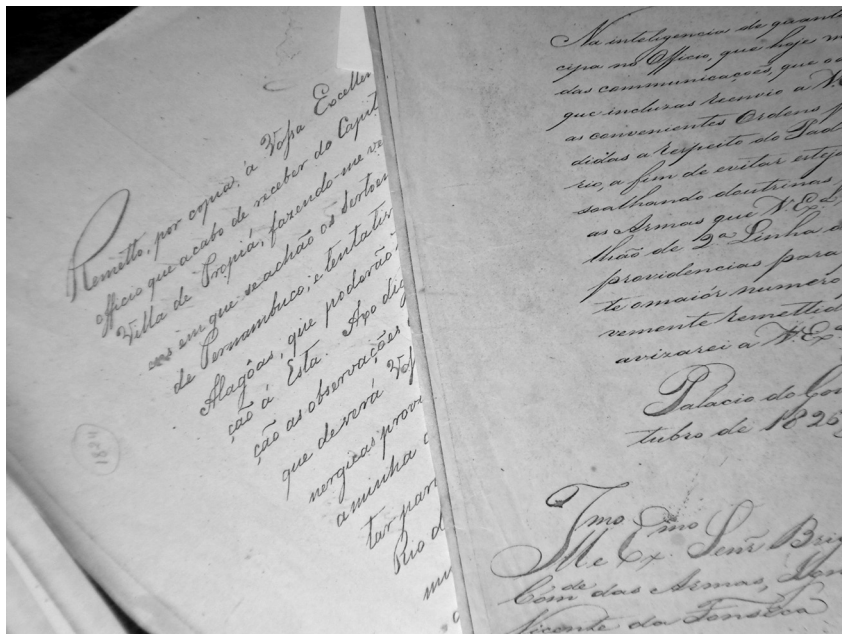 Remetto, por copia, á Vossa Excellen
officio que acabo de receber do Capit
Villa de Propiá, fazendo-me ve
em que se achão os Sertoen
de Pernambuco, e tentativ
Alagôas, que poderão
ção á Esta. Axo dig
ção as observações
que deverá Vos
nergicas provi
aminha
tar par
Rio d
1824
Na inteligencia de ficar
cipa no Officio, que hoje m
das communicações, que o
que incluzas reenvio a V. E
as convenientes Ordens
didas a respeito do Pad
rio, a fim de evitar esteja
soalhando doutrinas
as Armas que V. Exa
lhão de 2a Linha
providencias para
te o maiór numero
vemente remettid
avizarei a V. Exa
Palacio do Gov
tubro de 1825
Illmo e Exmo Senr Brig
Comde das Armas,
Vicente da Fonseca